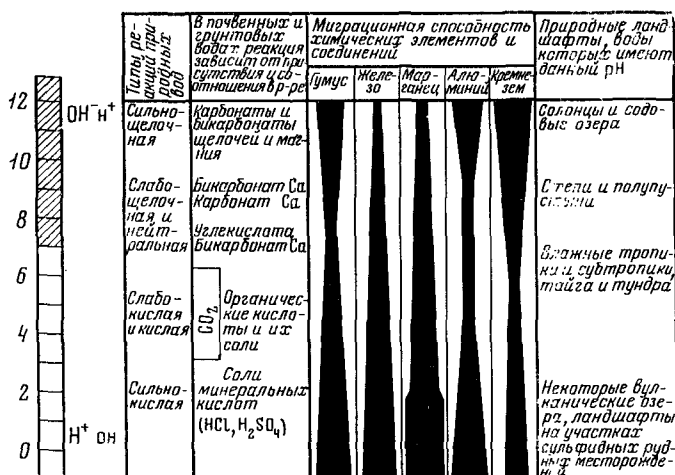 Типы ре-
акций при-
родных
вод
В почвенных и
грунтовых
водах реакция
зависит от при-
сутствия и со-
отношения в р-ре
Миграционная способность
химических элементов и
соединений
Гумус
Желе-
зо
Мар-
ганец
Алю-
миний
Кремне-
зем
Природные ланд-
шафты, воды
которых имеют
данный pH
12
10
8
6
4
2
0
OH⁻ H⁺
H⁺ OH
Сильно-
щелоч-
ная
Карбонаты и
бикарбонаты
щелочей и маг-
ния
Солонцы и содо-
вые озера
Слабо-
щелоч-
ная и
нейт-
ральная
Бикарбонат Ca
Карбонат Ca
Углекислота
Бикарбонат Ca
Степи и полупу-
стыни
Слабо-
кислая
и кислая
CO₂
Органиче-
ские кисло-
ты и их
соли
Влажные тропи-
ки и субтропики,
тайга и тундра
Сильно-
кислая
Соли
минеральных
кислот
(HCl, H₂SO₄)
Некоторые вул-
канические озе-
ра, ландшафты
на участках
сульфидных руд-
ных месторожде-
ний